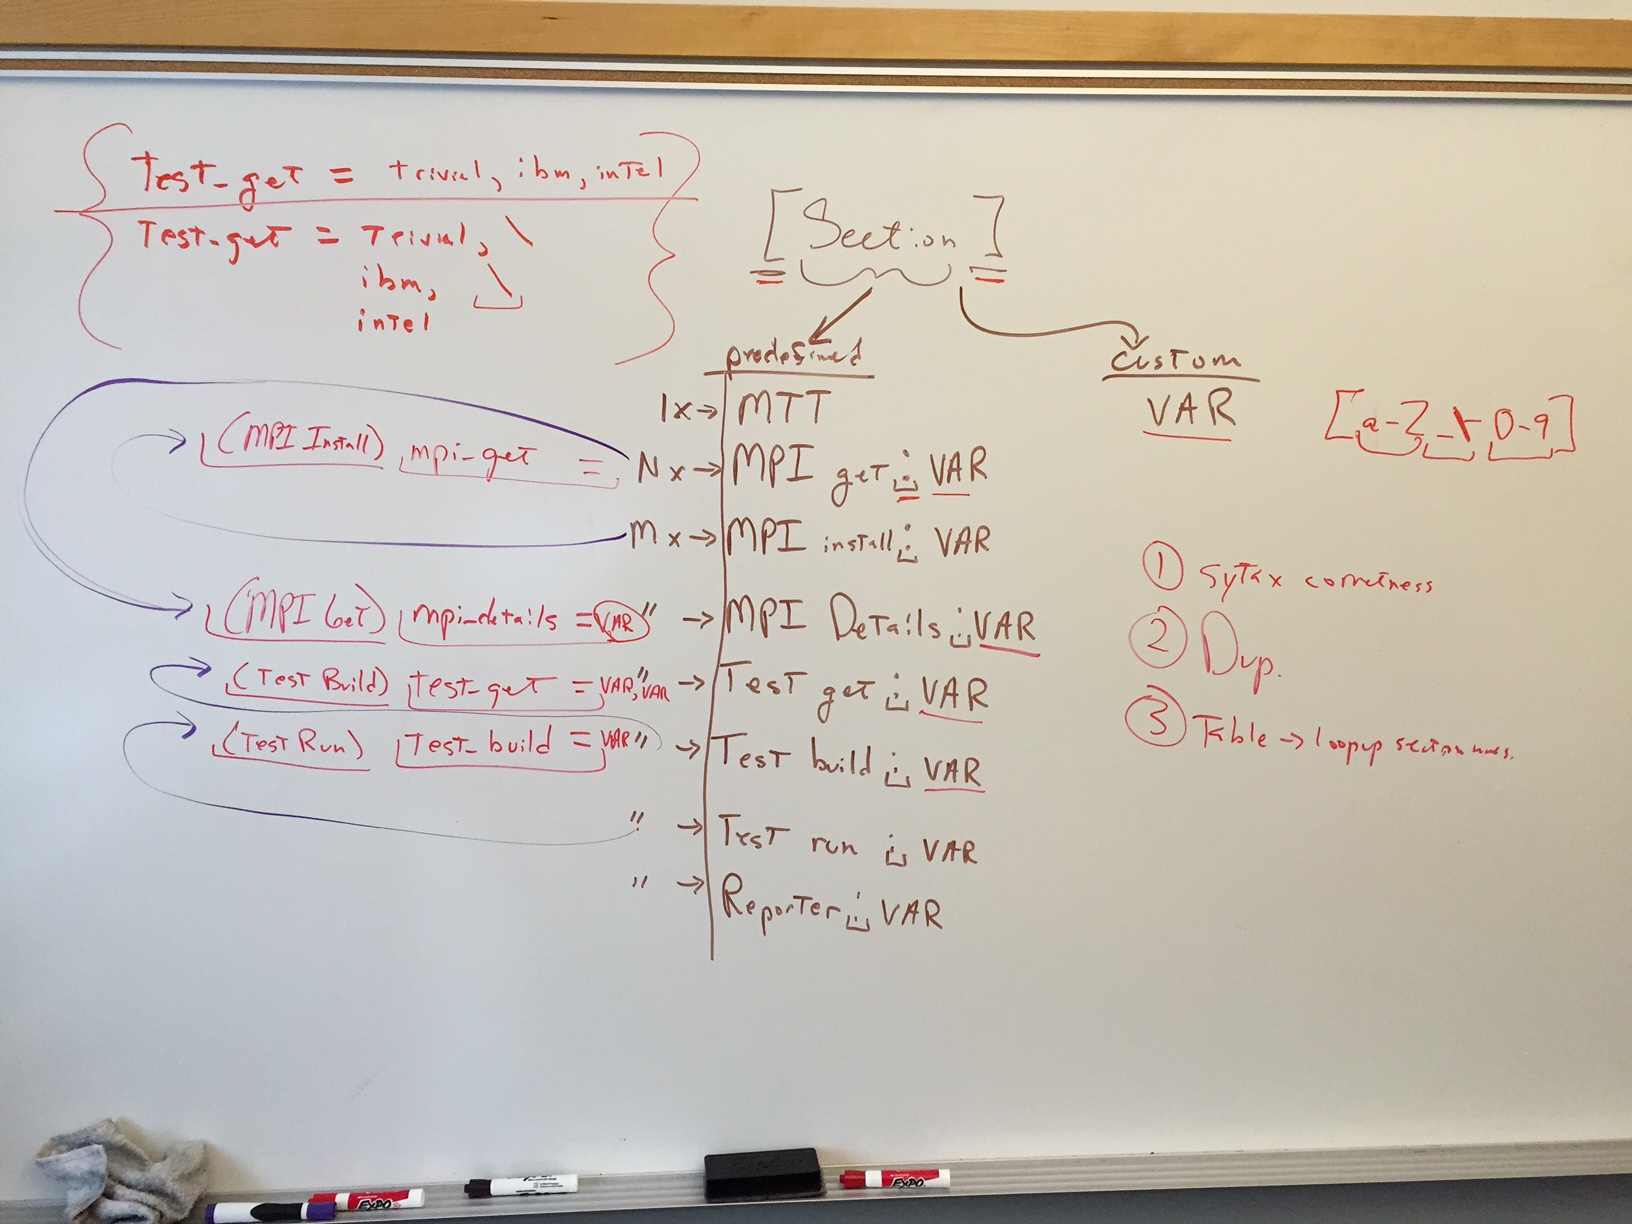 Test_get = trivial, ibm, intel
Test_get = Trivial, \
ibm, \
intel
[Section]
predefined
custom
1x → MTT
VAR
[a-Z_\-0-9]
(MPI Install) mpi-get =
Nx → MPI get: VAR
Mx → MPI install: VAR
(MPI Get) mpi-details = VAR " → MPI Details: VAR
(Test Build) test_get = VAR, VAR " → Test get: VAR
(Test Run) Test_build = VAR " → Test build: VAR
" → Test run: VAR
" → Reporter: VAR
① Sytax corretness
② Dup.
③ Table → loopup section names.
EXPO
EXPO